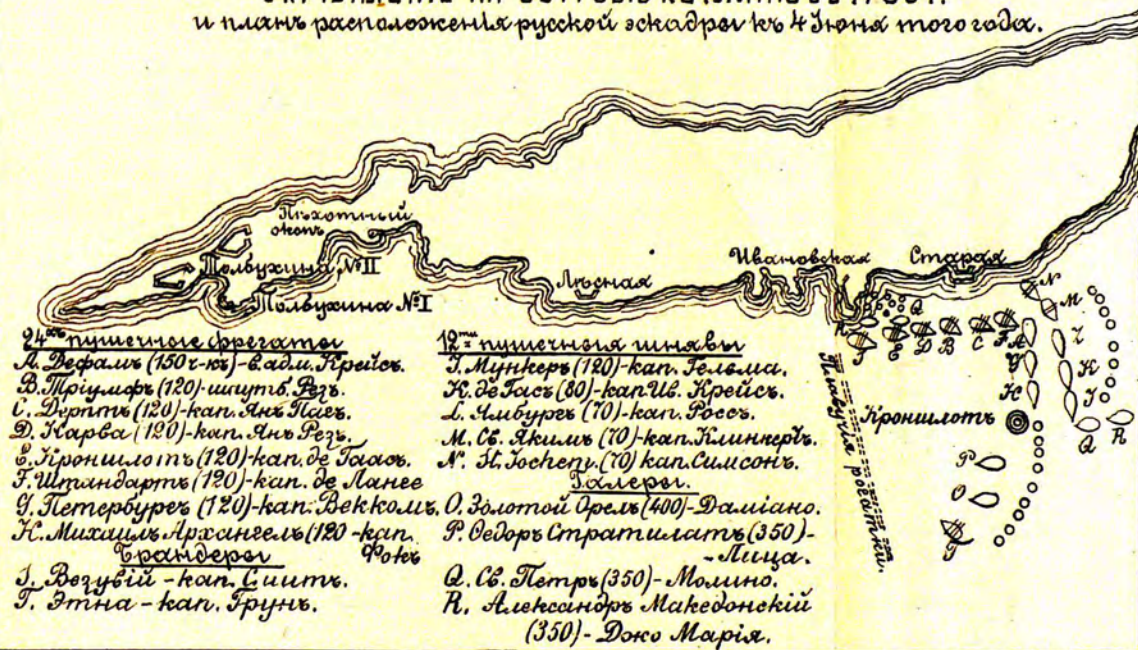 и планъ расположенія русской эскадры къ 4 Іюня того года.
Пѣхотный
окопъ
Толбухина № II
Толбухина № I
Лѣсная
Ивановская
Старая
Кроншлотъ
Плавучія рогатки.
N
M
L
K
I
R
Q
P
O
24хъ пушечные фрегаты
А. Дефамъ (150 ч-къ)-в.адм. Крейсъ.
В. Тріумфъ (120)-шхутб. Резъ.
С. Дерптъ (120)-кап. Янъ Пагъ.
D. Нарва (120)-кап. Янъ Резъ.
Е. Кроншлотъ (120)-кап. де Гаасъ.
F. Штандартъ (120)-кап. де Ланге
G. Петербургъ (120)-кап. Веккомъ.
Н. Михаилъ Архангелъ (120-кап. Фокъ
Брандеры
S. Везувій - кап. Смитъ.
Т. Этна - кап. Грунъ.
12ти пушечныя шнявы
I. Мункеръ (120)-кап. Гельма.
К. де Гасъ (80)-кап Ив. Крейсъ.
L. Ямбургъ (70)-кап. Россъ.
М. Св. Якимъ (70)-кап. Клинкертъ.
N. St. Jochem. (70) кап. Симсонъ.
Галеры.
О. Золотой Орелъ (400)-Даміано.
Р. Ѳедоръ Стратилатъ (350)-
-Лица.
Q. Св. Петръ (350)-Молино.
R. Александръ Македонскій
(350)-Джо Марія.